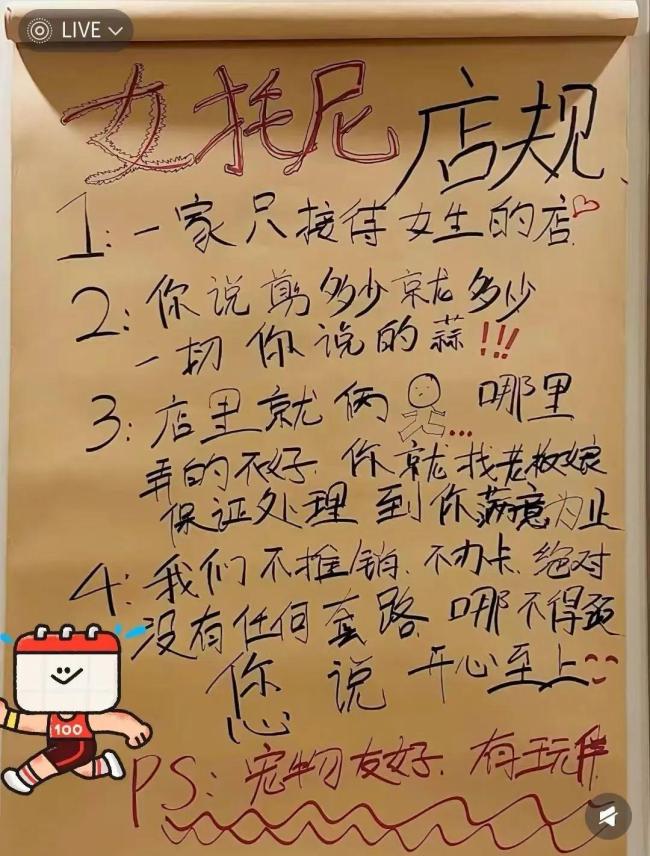 LIVE
女托尼 店规
1: 一家只接待女生的店
2: 你说剪多少就多少
一切你说的蒜!!!
3: 店里就俩... 哪里
弄的不好.你就找老板娘
保证处理到你满意为止
4: 我们不推销.不办卡.绝对
没有任何套路 哪不得劲
您说 开心至上
100
PS: 宠物友好.有玩伴